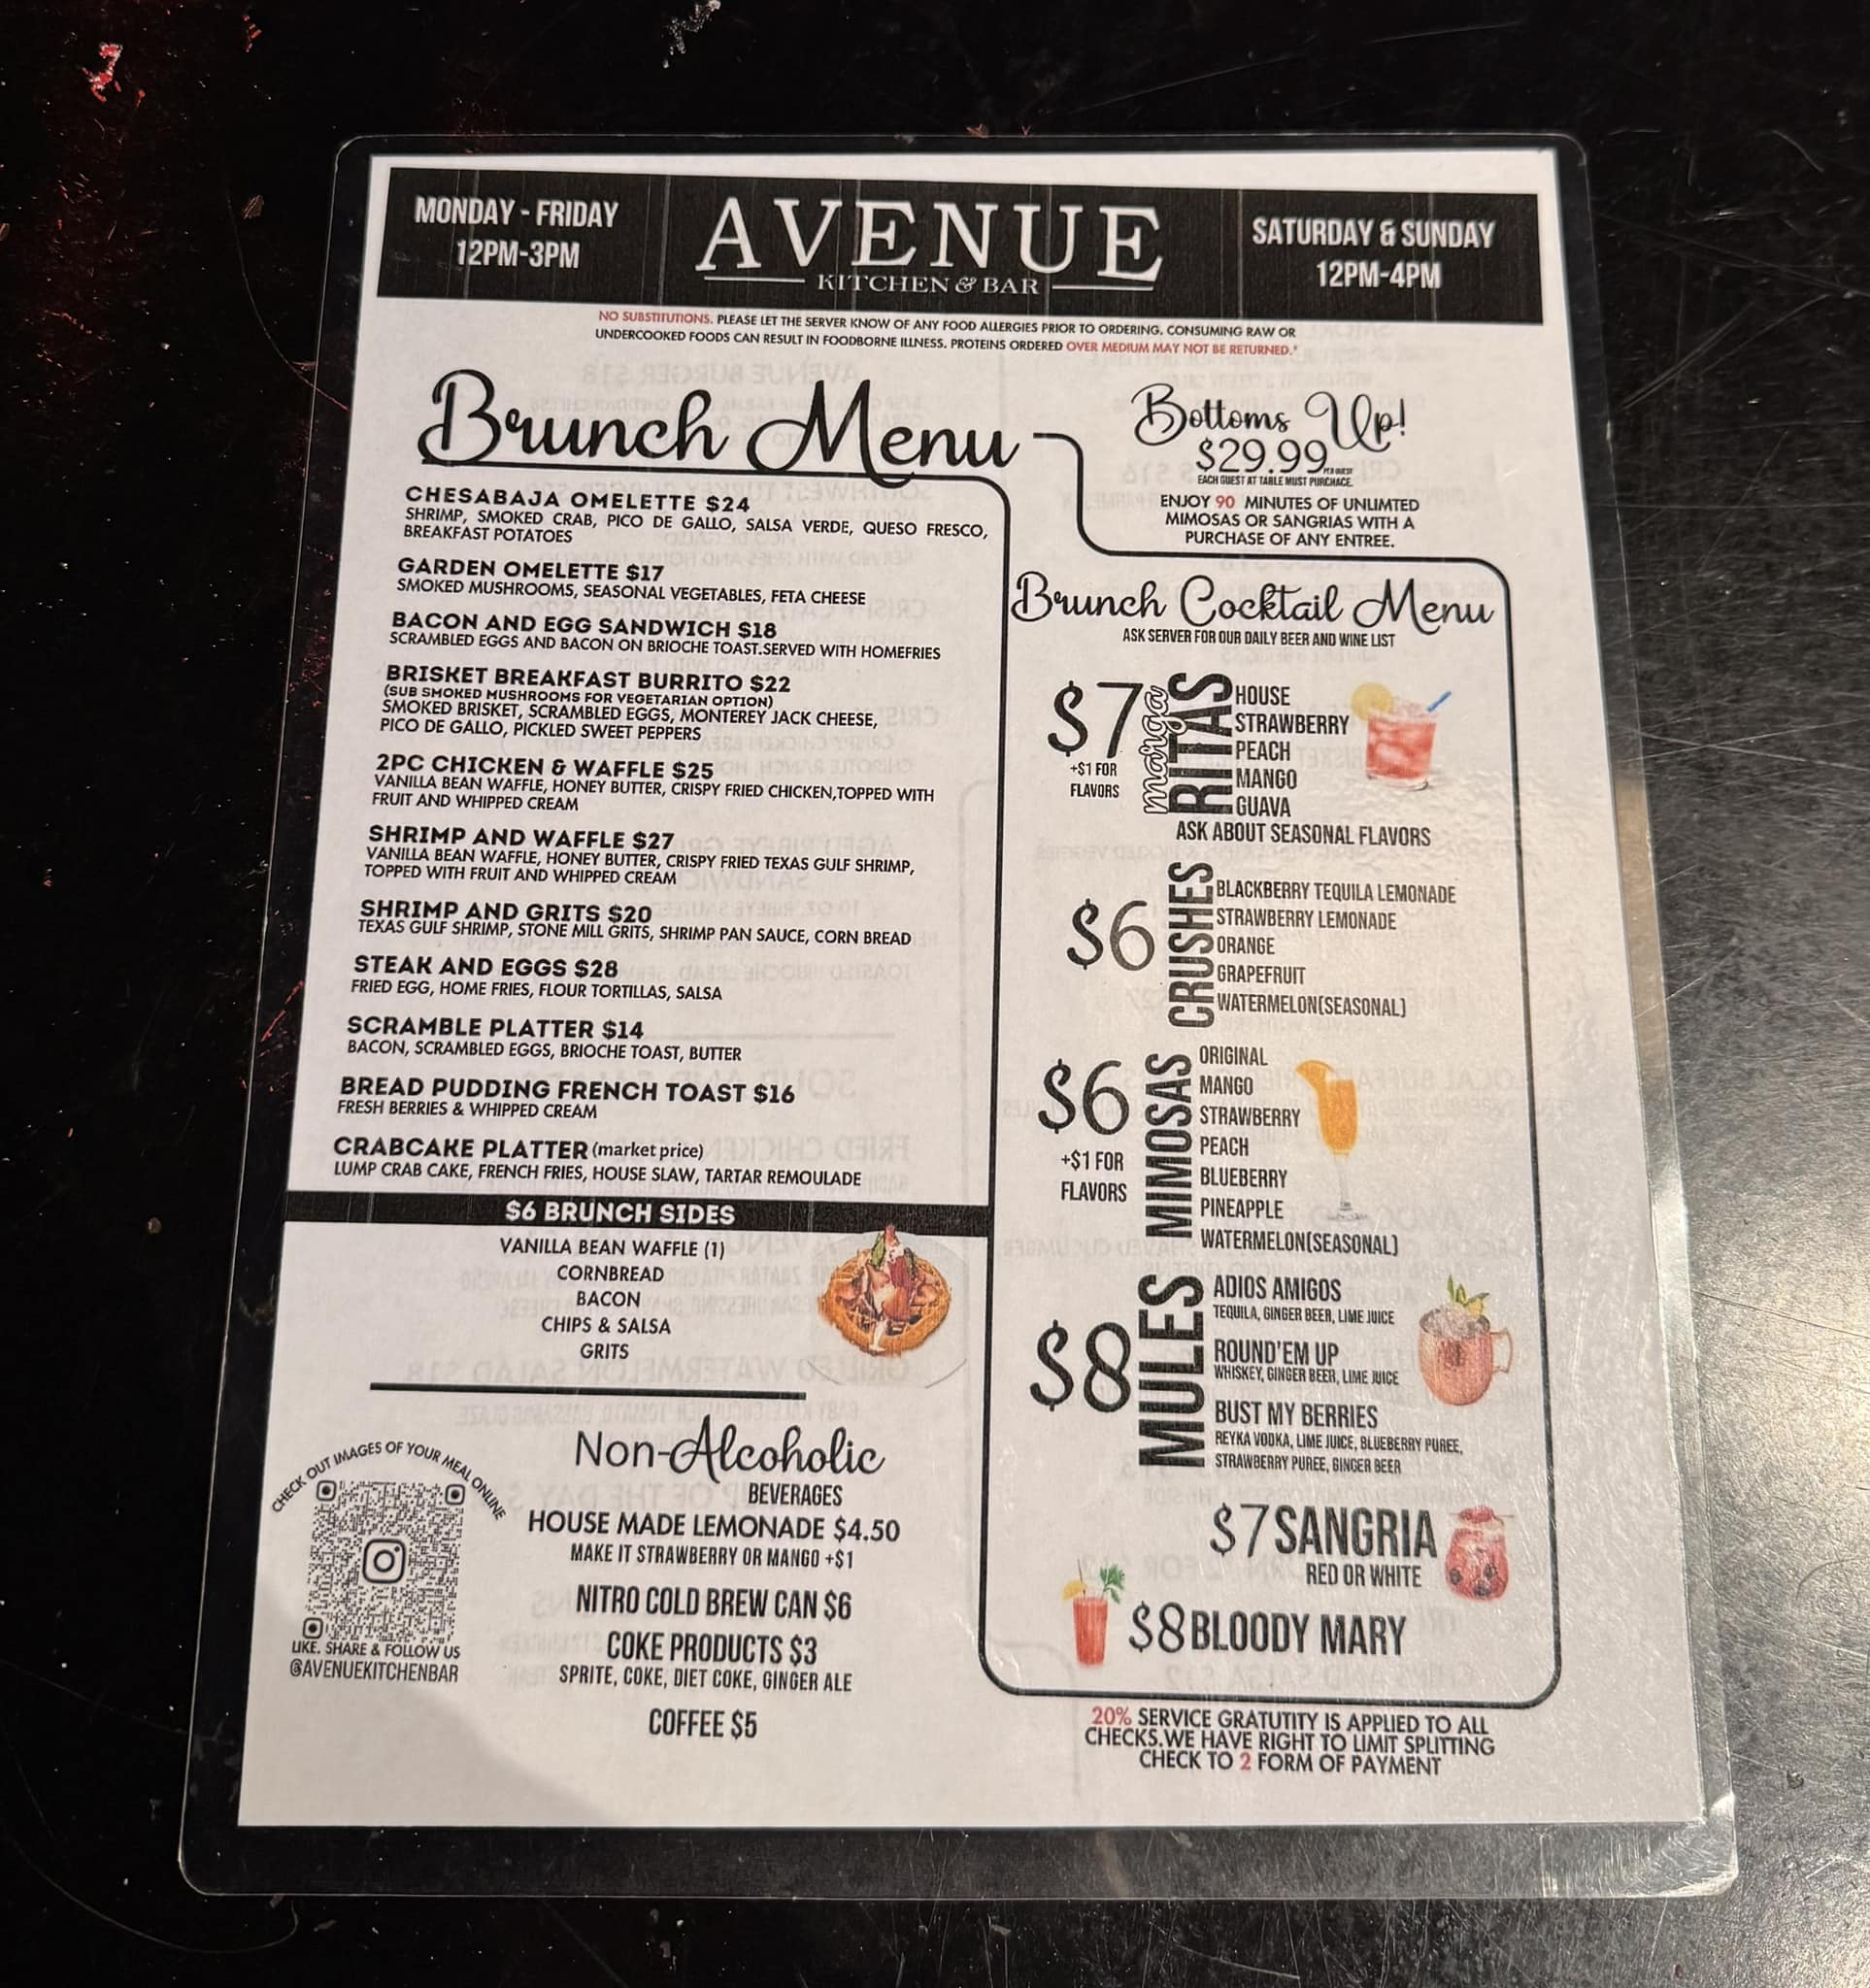 MONDAY - FRIDAY
12PM-3PM
AVENUE
KITCHEN & BAR
SATURDAY & SUNDAY
12PM-4PM
NO SUBSTITUTIONS. PLEASE LET THE SERVER KNOW OF ANY FOOD ALLERGIES PRIOR TO ORDERING. CONSUMING RAW OR
UNDERCOOKED FOODS CAN RESULT IN FOODBORNE ILLNESS. PROTEINS ORDERED OVER MEDIUM MAY NOT BE RETURNED.*
Brunch Menu
CHESABAJA OMELETTE $24
SHRIMP, SMOKED CRAB, PICO DE GALLO, SALSA VERDE, QUESO FRESCO,
BREAKFAST POTATOES
GARDEN OMELETTE $17
SMOKED MUSHROOMS, SEASONAL VEGETABLES, FETA CHEESE
BACON AND EGG SANDWICH $18
SCRAMBLED EGGS AND BACON ON BRIOCHE TOAST.SERVED WITH HOMEFRIES
BRISKET BREAKFAST BURRITO $22
(SUB SMOKED MUSHROOMS FOR VEGETARIAN OPTION)
SMOKED BRISKET, SCRAMBLED EGGS, MONTEREY JACK CHEESE,
PICO DE GALLO, PICKLED SWEET PEPPERS
2PC CHICKEN & WAFFLE $25
VANILLA BEAN WAFFLE, HONEY BUTTER, CRISPY FRIED CHICKEN,TOPPED WITH
FRUIT AND WHIPPED CREAM
SHRIMP AND WAFFLE $27
VANILLA BEAN WAFFLE, HONEY BUTTER, CRISPY FRIED TEXAS GULF SHRIMP,
TOPPED WITH FRUIT AND WHIPPED CREAM
SHRIMP AND GRITS $20
TEXAS GULF SHRIMP, STONE MILL GRITS, SHRIMP PAN SAUCE, CORN BREAD
STEAK AND EGGS $28
FRIED EGG, HOME FRIES, FLOUR TORTILLAS, SALSA
SCRAMBLE PLATTER $14
BACON, SCRAMBLED EGGS, BRIOCHE TOAST, BUTTER
BREAD PUDDING FRENCH TOAST $16
FRESH BERRIES & WHIPPED CREAM
CRABCAKE PLATTER (market price)
LUMP CRAB CAKE, FRENCH FRIES, HOUSE SLAW, TARTAR REMOULADE
$6 BRUNCH SIDES
VANILLA BEAN WAFFLE (1)
CORNBREAD
BACON
CHIPS & SALSA
GRITS
CHECK OUT IMAGES OF YOUR MEAL ONLINE
LIKE. SHARE & FOLLOW US
@AVENUEKITCHENBAR
Non-Alcoholic
BEVERAGES
HOUSE MADE LEMONADE $4.50
MAKE IT STRAWBERRY OR MANGO +$1
NITRO COLD BREW CAN $6
COKE PRODUCTS $3
SPRITE, COKE, DIET COKE, GINGER ALE
COFFEE $5
Bottoms Up!
$29.99 PER GUEST
EACH GUEST AT TABLE MUST PURCHACE.
ENJOY 90 MINUTES OF UNLIMTED
MIMOSAS OR SANGRIAS WITH A
PURCHASE OF ANY ENTREE.
Brunch Cocktail Menu
ASK SERVER FOR OUR DAILY BEER AND WINE LIST
$7
+$1 FOR
FLAVORS
marga
RITAS
HOUSE
STRAWBERRY
PEACH
MANGO
GUAVA
ASK ABOUT SEASONAL FLAVORS
$6
CRUSHES
BLACKBERRY TEQUILA LEMONADE
STRAWBERRY LEMONADE
ORANGE
GRAPEFRUIT
WATERMELON(SEASONAL)
$6
+$1 FOR
FLAVORS
MIMOSAS
ORIGINAL
MANGO
STRAWBERRY
PEACH
BLUEBERRY
PINEAPPLE
WATERMELON(SEASONAL)
$8
MULES
ADIOS AMIGOS
TEQUILA, GINGER BEER, LIME JUICE
ROUND'EM UP
WHISKEY, GINGER BEER, LIME JUICE
BUST MY BERRIES
REYKA VODKA, LIME JUICE, BLUEBERRY PUREE,
STRAWBERRY PUREE, GINGER BEER
$7 SANGRIA
RED OR WHITE
$8 BLOODY MARY
20% SERVICE GRATUTITY IS APPLIED TO ALL
CHECKS.WE HAVE RIGHT TO LIMIT SPLITTING
CHECK TO 2 FORM OF PAYMENT